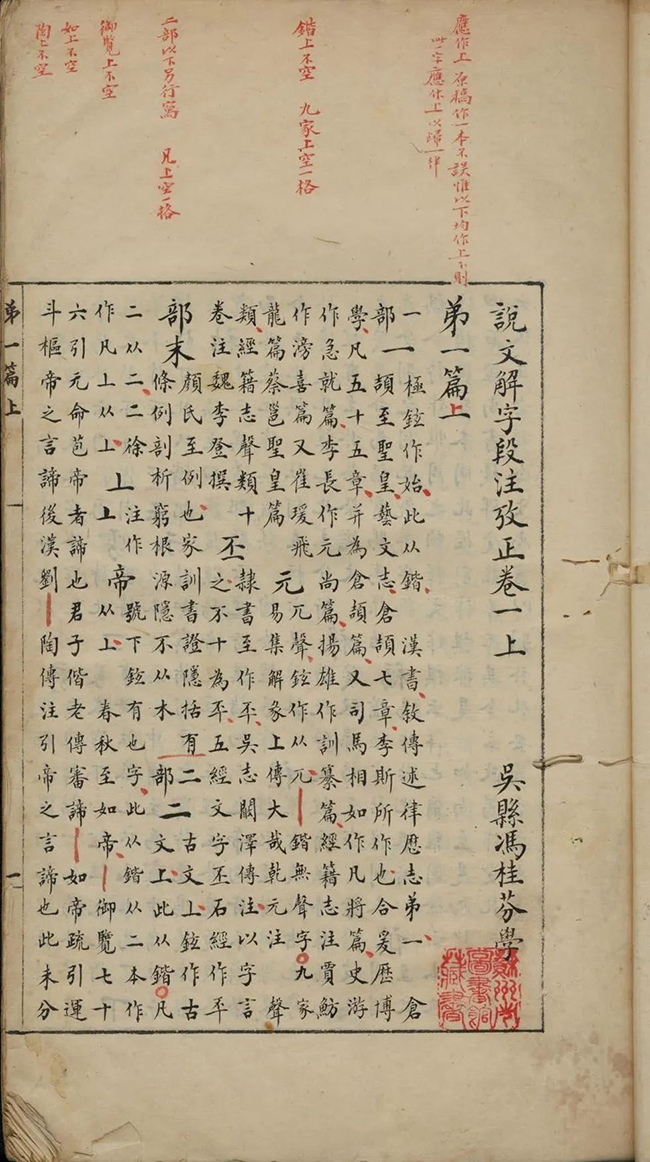 應作上原稿作一本不誤惟以下均作上下則
此一字應休上以歸一律
鍇上不空 九家上空一格
二部以下另行寫 凡上空一格
御覽上不空
如上不空
陶上不空
說文解字段注攷正卷一上 吳縣馮桂芬學
弟一篇上
一 極鉉作始此从鍇 漢書敘傳述律歷志弟一 倉
部一 頡至聖皇藝文志倉頡七章李斯所作也合爰歷博
學凡五十五章并為倉頡篇又司馬相如作凡將篇史游
作急就篇李長作元尚篇揚雄作訓纂篇經籍志注賈魴
作滂喜篇又崔瑗飛 元 兀聲鉉作从兀 鍇無聲字 九家
龍篇蔡邕聖皇篇 易集解彖上傳大哉乾元注 聲
類經籍志聲類十 丕 隸書至作㔻吳志闞澤傳注以字言
卷注魏李登撰 之不十為㔻五經文字丕石經作㔻
部末 顏氏至例也家訓書證隱括有 二 古文上鉉作古
條例剖析窮根源隱不从木 部二 文上此从鍇 凡
二从二二徐 丄 注作 帝 號下鉉有也字此从鍇从二本作
作凡丄从丄 上 从丄 春秋至如帝 御覽七十
六引元命苞帝者諦也君子偕老傳審諦 如帝疏引運
斗樞帝之言諦後漢劉 陶傳注引帝之言諦也此未分
弟一篇上
一
蘇州市圖書館藏書